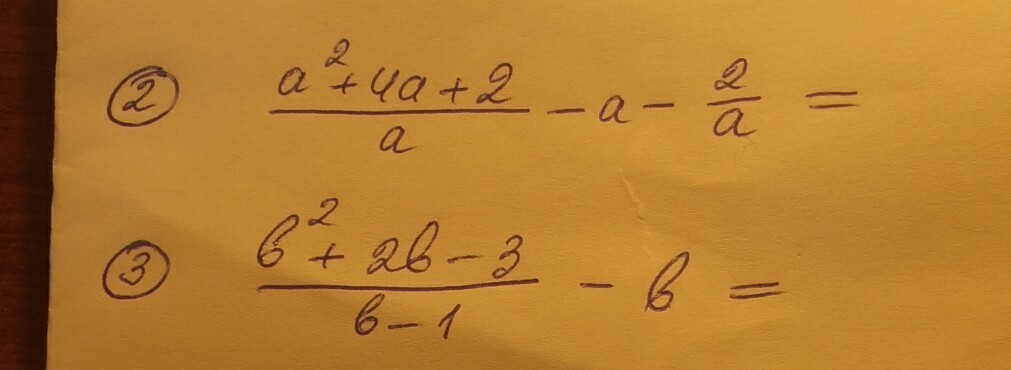 ② (a² + 4a + 2)/a − a − 2/a =
③ (b² + 2b − 3)/(b − 1) − b =